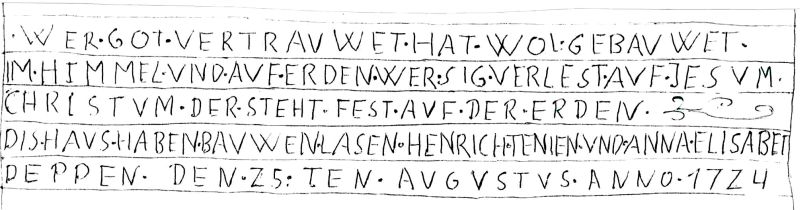 ·WER·GOT·VERTRAVWET·HAT·WOL·GEBAVWET·
IM·HIMMEL·VND·AVF·ERDEN·WER·SIG·VERLEST·AVF·JESVM·
CHRISTVM·DER·STEHT·FEST·AVF·DER·ERDEN·
DIS·HAVS·HABEN·BAVWEN·LASEN·HENRICH·TENIEN·VND·ANNA·ELISABET
PEPPEN· DEN·25:TEN·AVGVSTVS·ANNO·1724